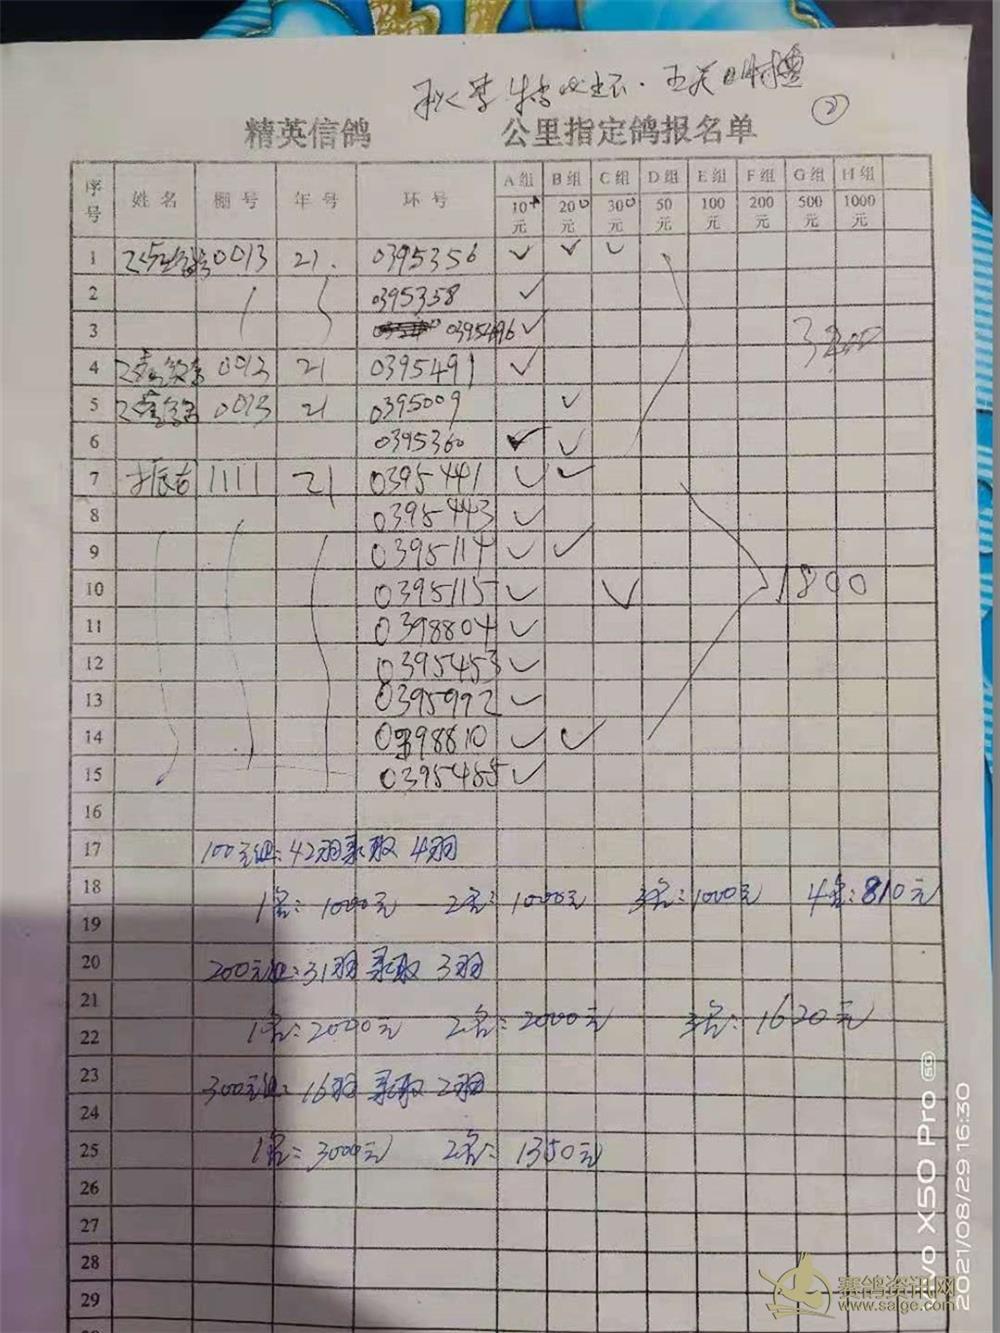 ②
精英信鸽 公里指定鸽报名单
序号 姓名 棚号 年号 环号 A组 B组 C组 D组 E组 F组 G组 H组
10元 200元 300元 50元 100元 200元 500元 1000元
1 0013 21. 0395356 ✓ ✓ ✓
2 0395358 ✓
3 0395496 ✓
4 0013 21 0395491 ✓
5 0013 21 0395009 ✓
6 0395360 ✓ ✓
7 1111 21 0395441 ✓ ✓
8 0395443 ✓
9 0395114 ✓ ✓
10 0395115 ✓ ✓ 1800
11 0398804 ✓
12 0395453 ✓
13 0395992 ✓
14 0398810 ✓ ✓
15 0395455 ✓
16
17 100元组:42羽录取4羽
18 1名:1000元 2名:1000元 3名:1000元 4名:810元
19
20 200元组:31羽录取3羽
21
22 1名:2000元 2名:2000元 3名:1620元
23 300元组:16羽录取2羽
24
25 1名:3000元 2名:1350元
26
27
28
29
vivo X50 Pro 5G
2021/08/29 16:30
赛鸽资讯网
www.saige.com